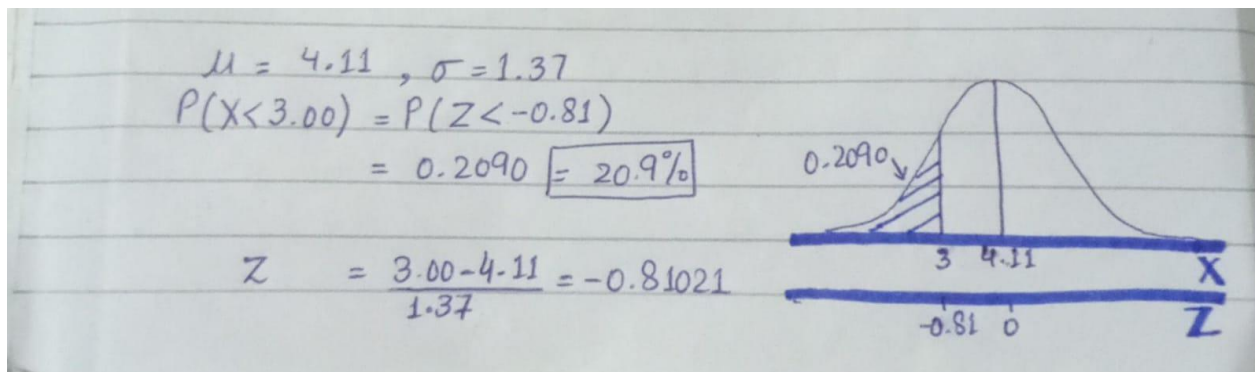 μ = 4.11 , σ = 1.37
P(X<3.00) = P(Z<-0.81)
= 0.2090 = 20.9%
Z = 3.00-4.11 = -0.81021
1.37
0.2090
3 4.11
X
-0.81 0
Z